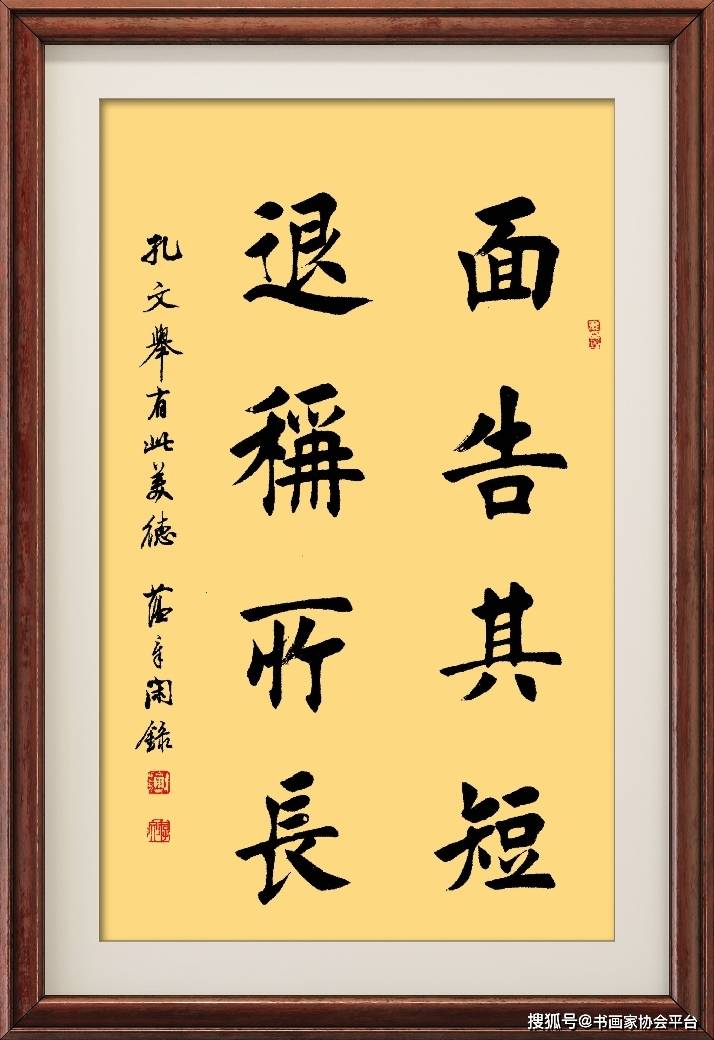 面告其短
退稱所長
孔文舉有此美德 閑錄
搜狐号@书画家协会平台